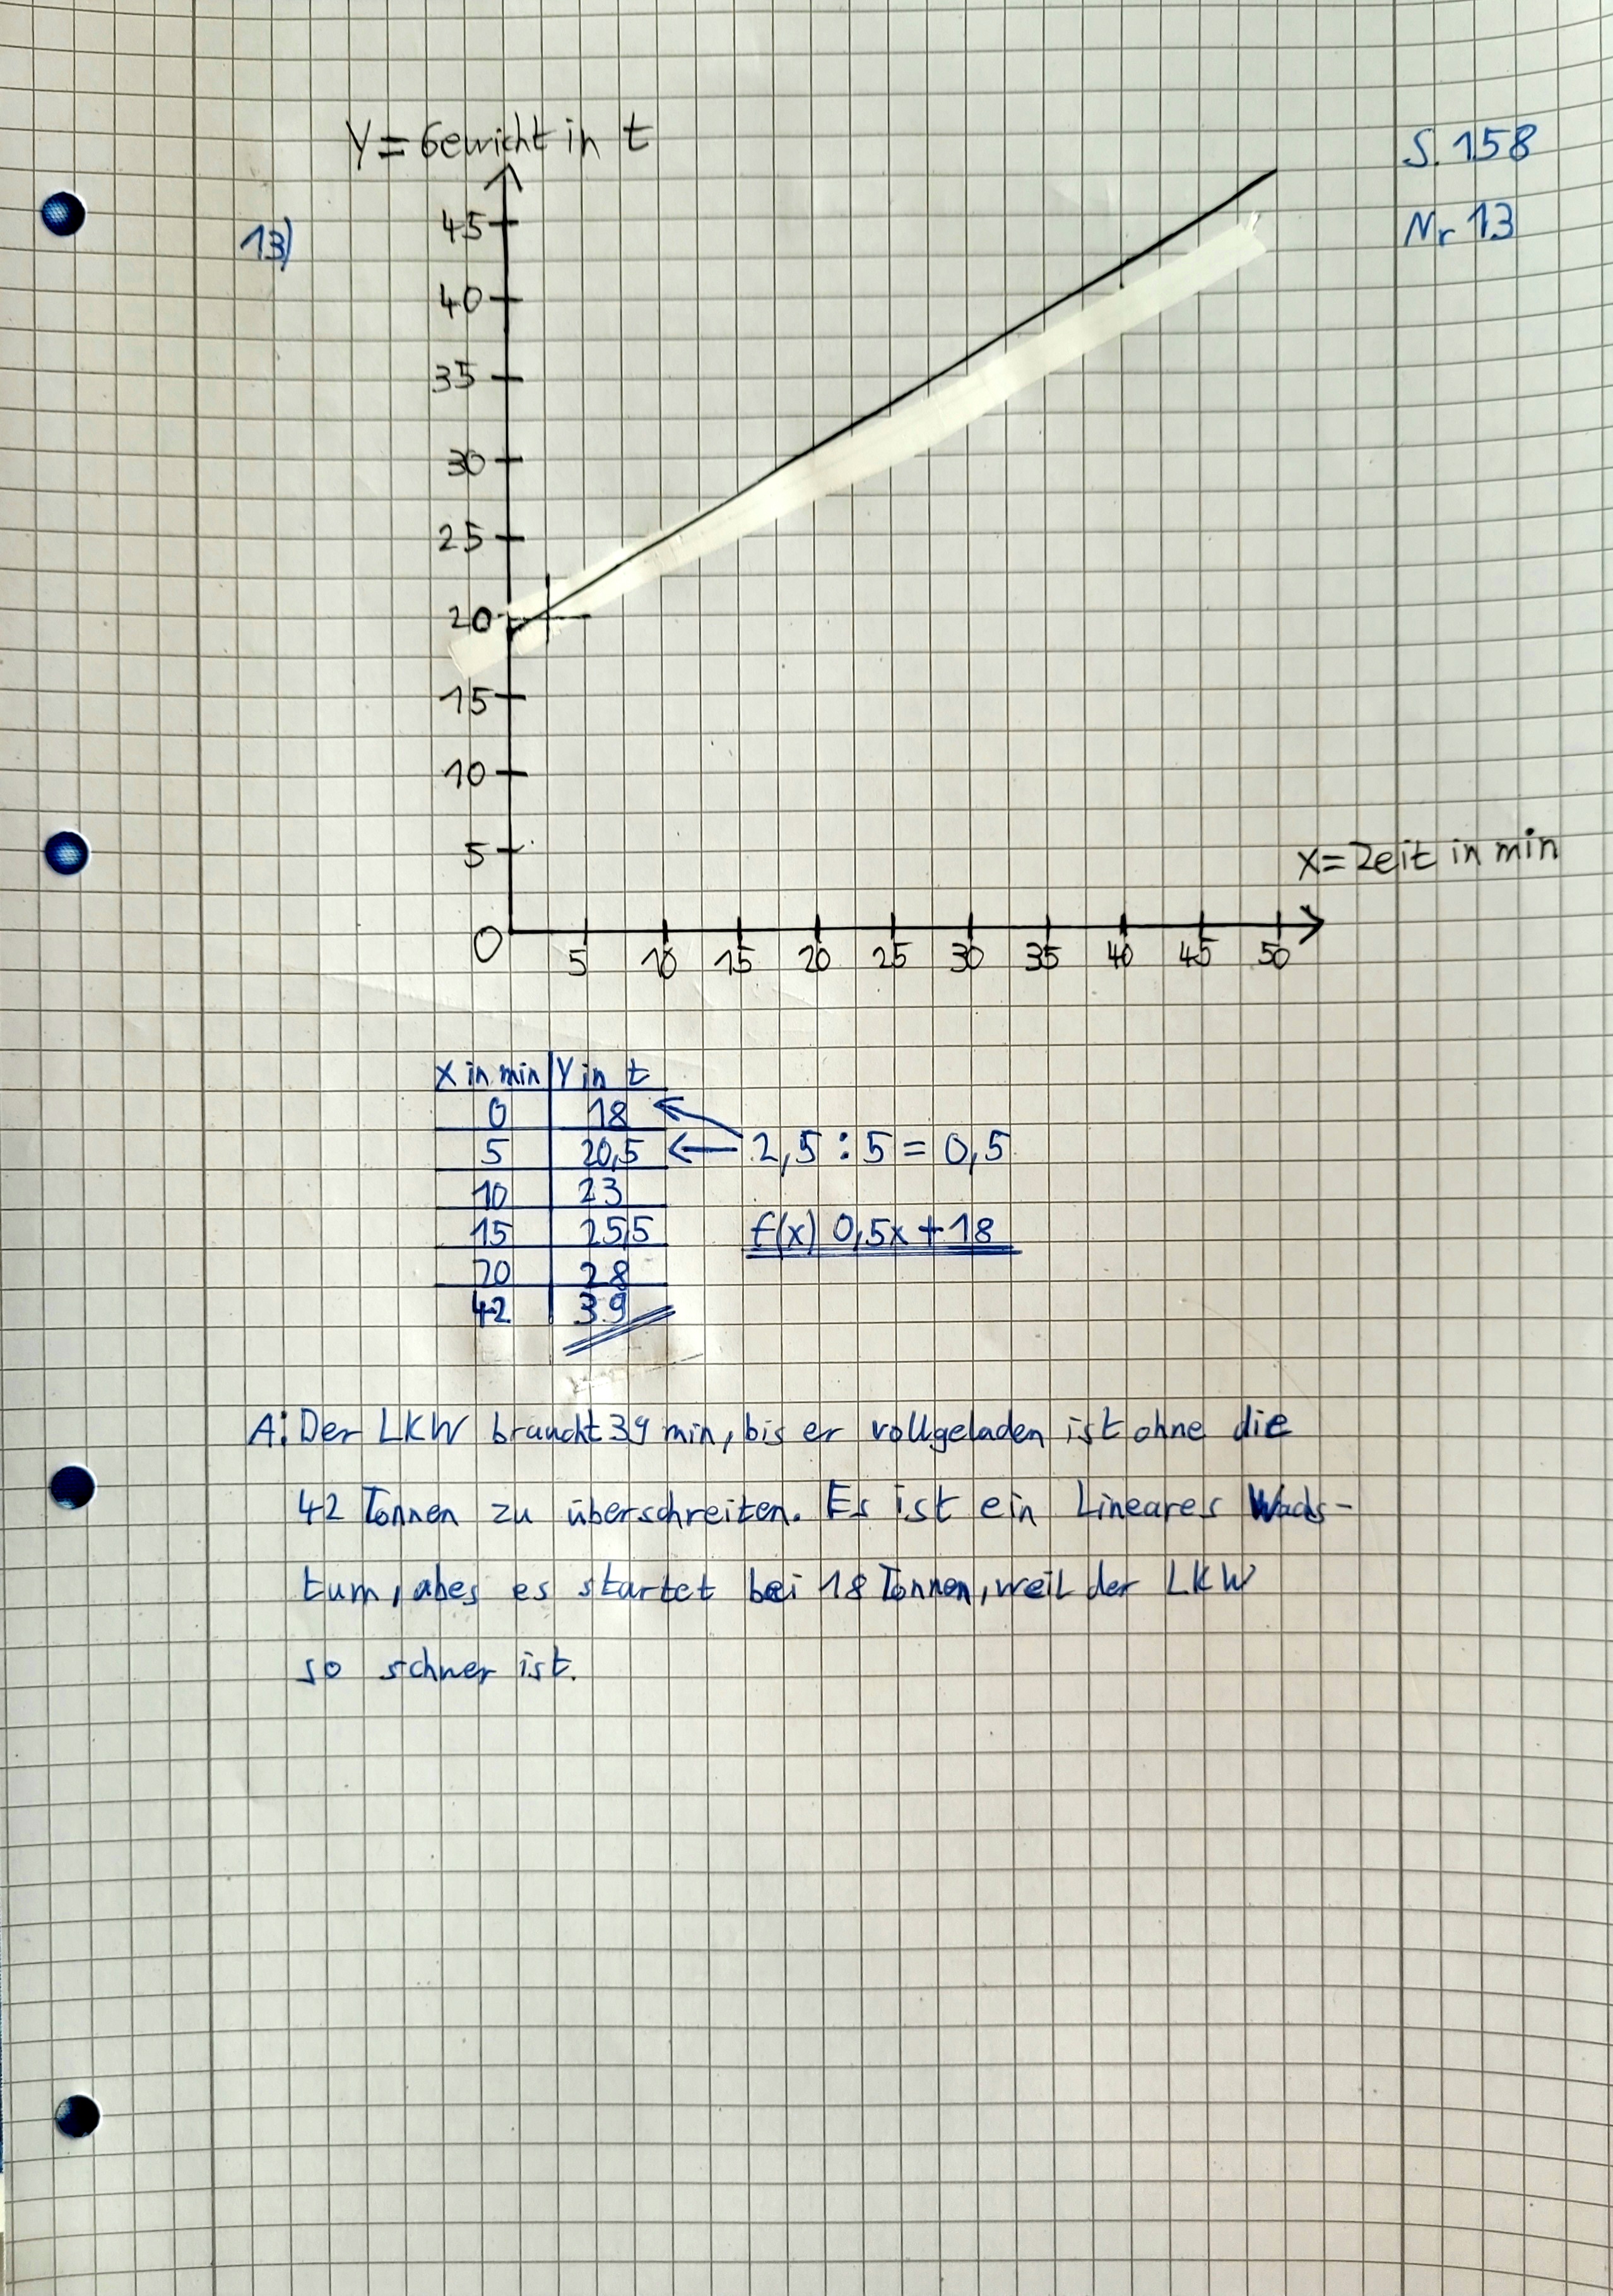 Y = Gewicht in t
S. 158
Nr 13
13)
45
40
35
30
25
20
15
10
5
X = Zeit in min
0
5 10 15 20 25 30 35 40 45 50
X in min Y in t
0 18
5 20,5 2,5 : 5 = 0,5
10 23
15 25,5 f(x) 0,5x + 18
20 28
42 39
A: Der LKW braucht 39 min, bis er vollgeladen ist ohne die
42 Tonnen zu überschreiten. Es ist ein Lineares Wachs-
tum, abes es startet bei 18 Tonnen, weil der LKW
so schwer ist.